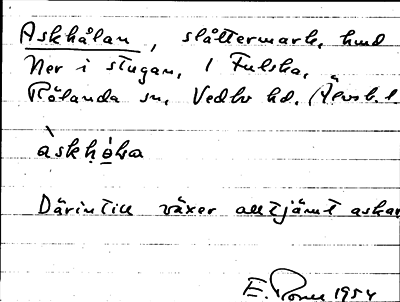 Askhålan, slåttermark, hmd
Ner i stugan, 1 Fulska,
Rölanda sn, Vedbo hd, Älvsb. l
àskḥò̱lva
Därintill växer alltjämt askar
E. 1954